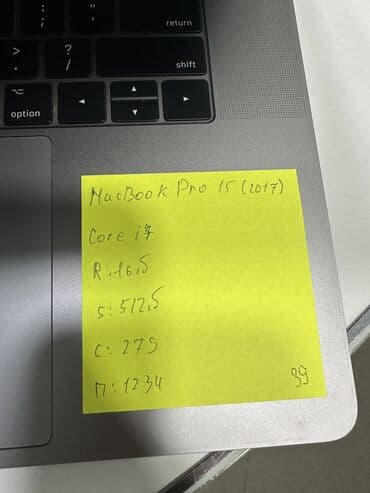 return
shift
option
MacBook Pro 15 (2017)
Core i7
R:16,б
S:512,б
C: 279
П:1234
39